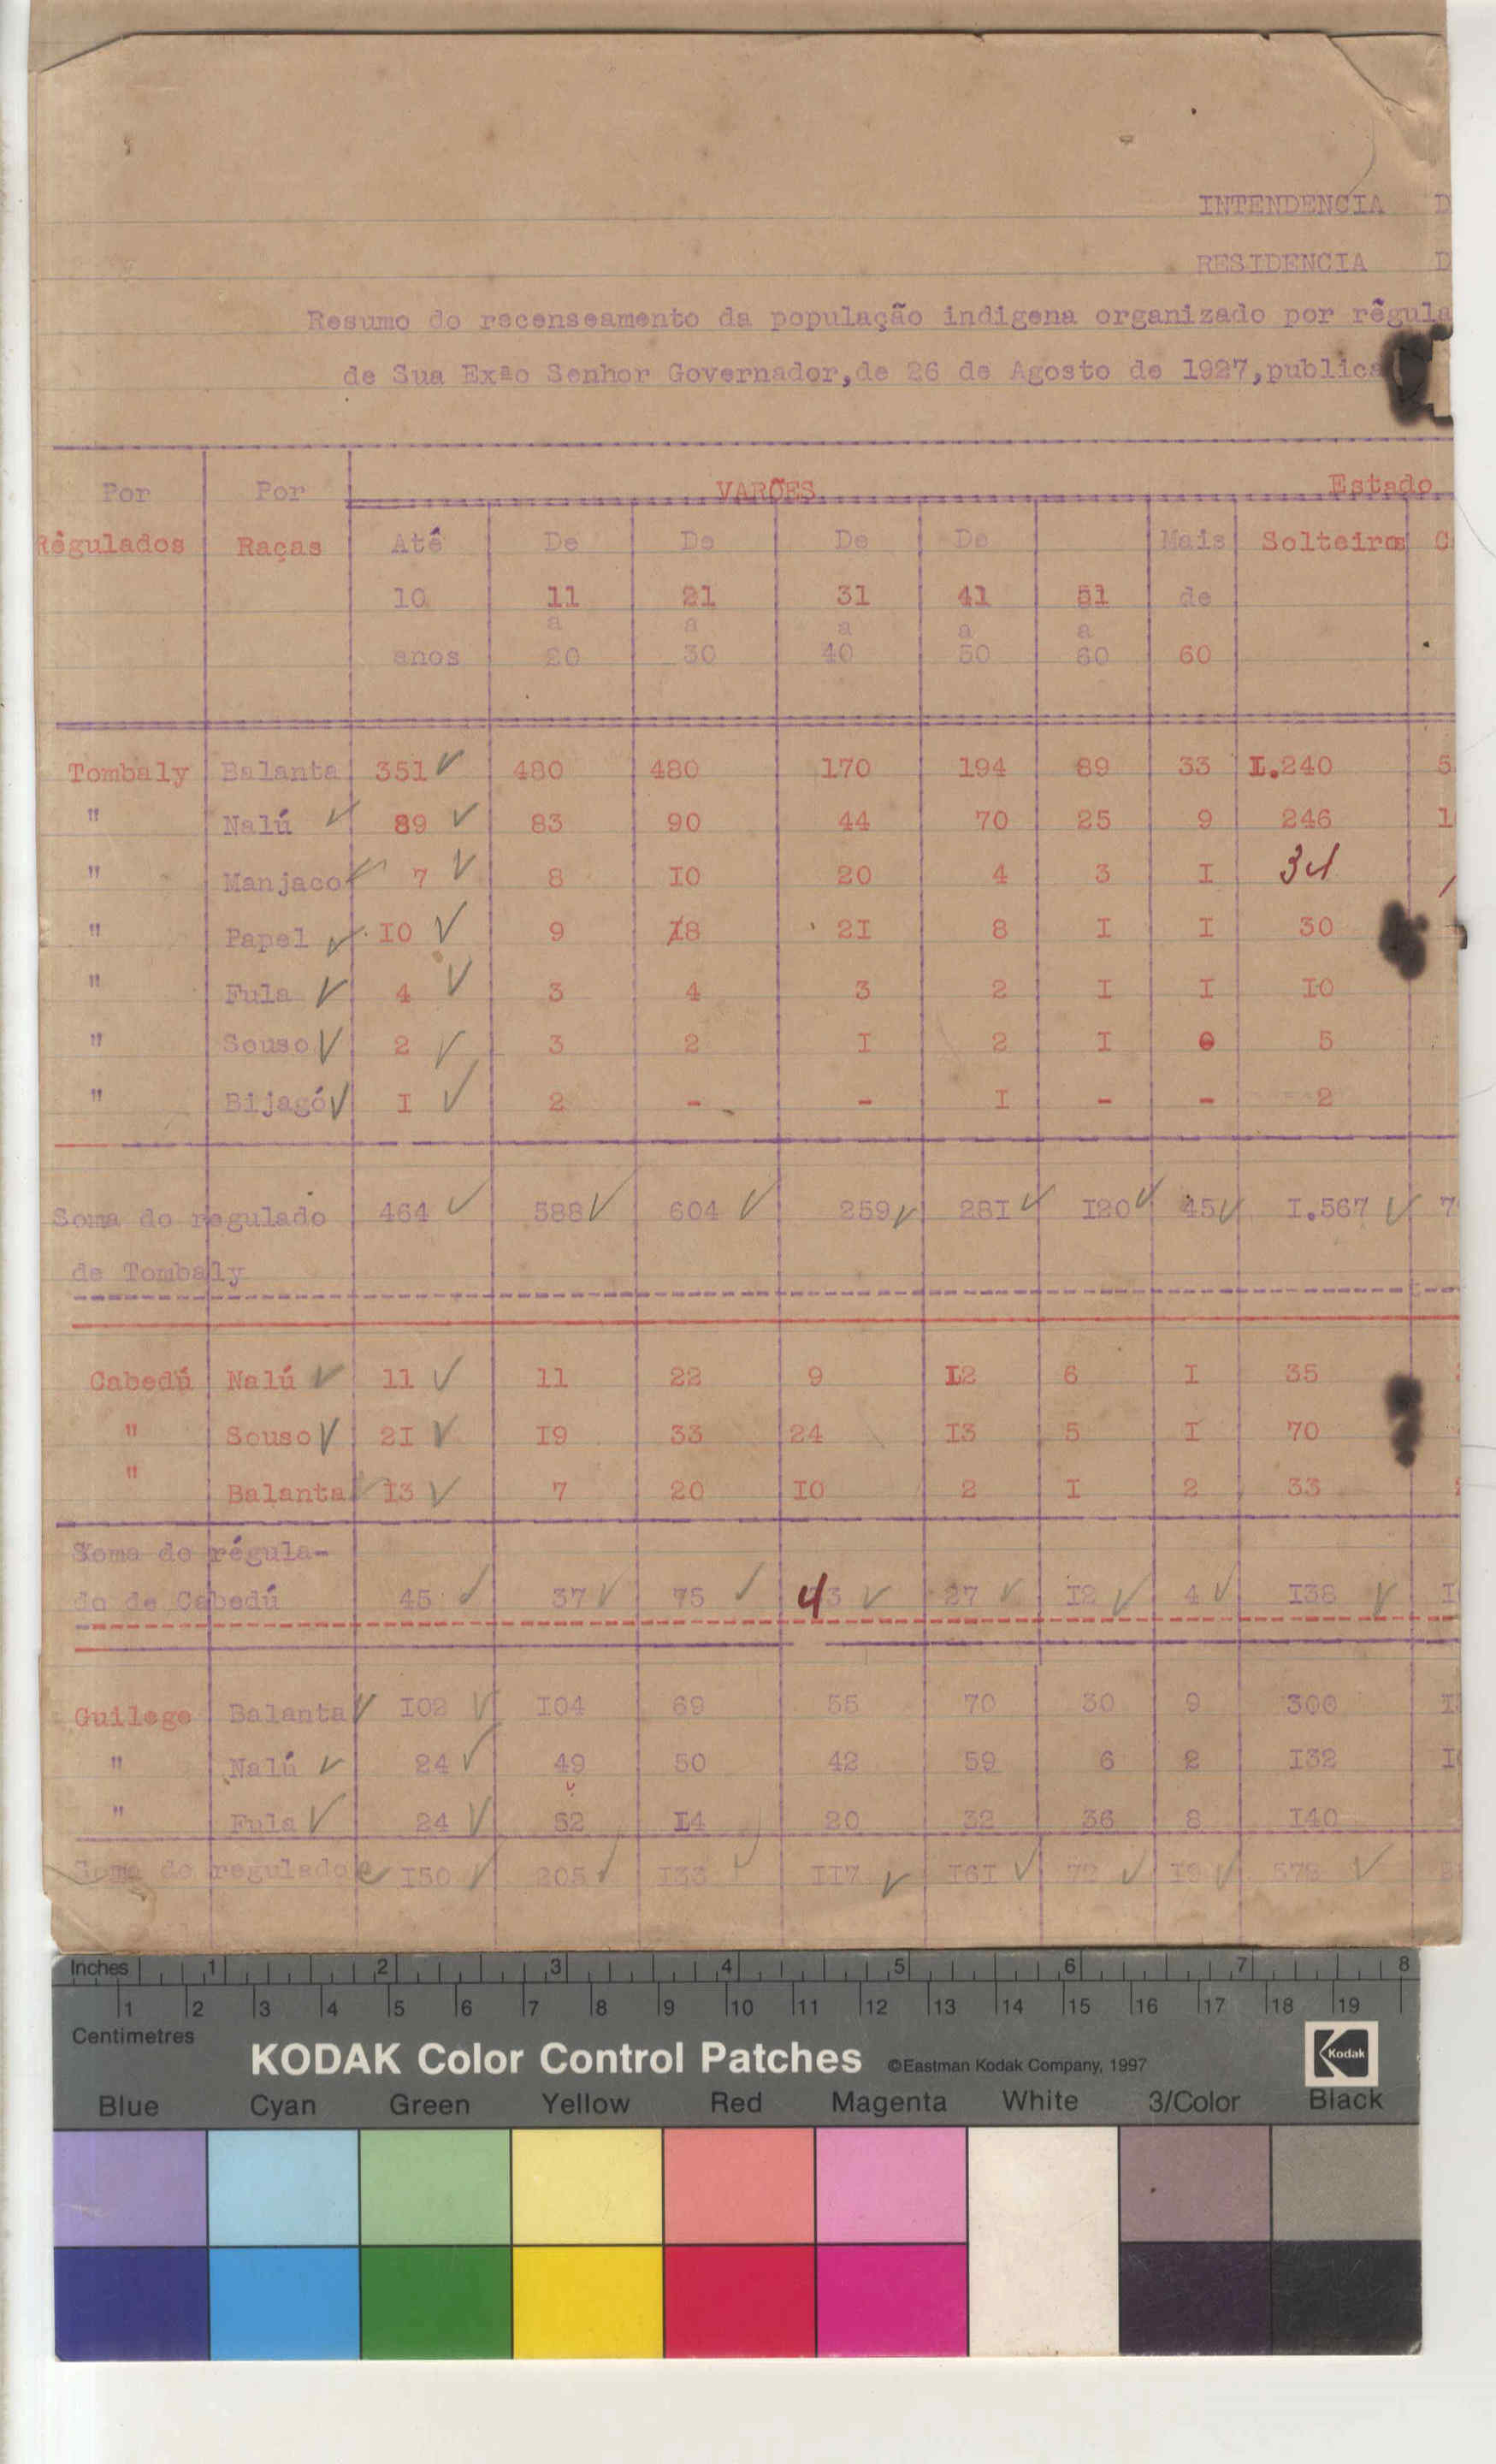 INTENDENCIA D
RESIDENCIA D
Resumo do recenseamento da população indigena organizado por rêgula
de Sua Exªo Senhor Governador,de 26 de Agosto de 1927,publica
Por Por VARÕES Estado
Rêgulados Raças Atê De De De De Mais Solteiros C
10 11 21 31 41 51 de
a a a a a
anos 20 30 40 50 60 60
Tombaly Balanta 351 480 480 170 194 89 33 I.240 5
" Nalú 89 83 90 44 70 25 9 246 1
" Manjaco 7 8 I0 20 4 3 I 31
" Papel I0 9 I8 2I 8 I I 30
" Fula 4 3 4 3 2 I I I0
" Souso 2 3 2 I 2 I 0 5
" Bijagó I 2 - - I - - 2
Soma do regulado 464 588 604 259 28I I20 45 I.567 7
de Tombaly
Cabedú Nalú 11 11 22 9 I2 6 I 35
" Souso 2I I9 33 24 I3 5 I 70
" Balanta I3 7 20 I0 2 I 2 33
Soma do régula-
do de Cabedú 45 37 75 43 27 I2 4 I38 I
Guilege Balanta I02 I04 69 55 70 30 9 300 I
" Nalú 24 49 50 42 59 6 2 I32 I
" Fula 24 52 I4 20 32 36 8 I40
Soma do regulado I50 205 I33 II7 I6I 72 I9 572
Inches 1 2 3 4 5 6 7 8
1 2 3 4 5 6 7 8 9 10 11 12 13 14 15 16 17 18 19
Centimetres
KODAK Color Control Patches ©Eastman Kodak Company, 1997 Kodak
Blue Cyan Green Yellow Red Magenta White 3/Color Black